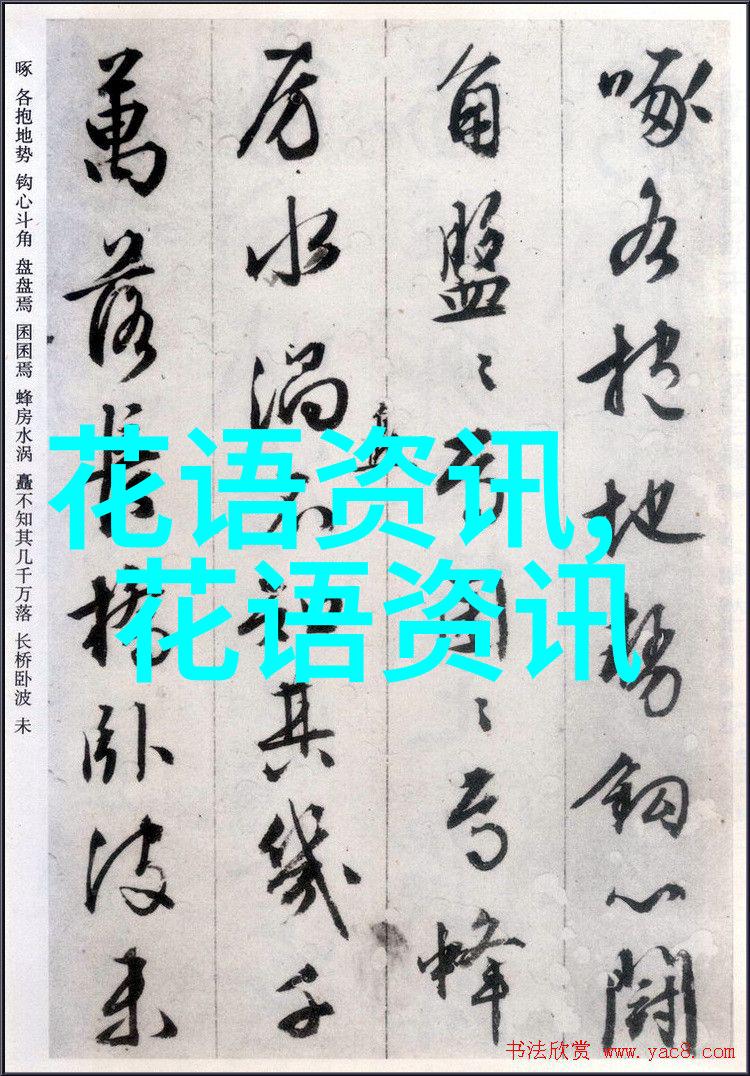 啄各抱地勢鈎心鬪
角盤〻焉囷〻焉蜂
房水渦矗不知其幾千
萬落長橋卧波未
啄 各抱地势 钩心斗角 盘盘焉 囷囷焉 蜂房水涡 矗不知其几千万落 长桥卧波 未
花语资讯,
花语资讯
书法欣赏 www.yac8.com